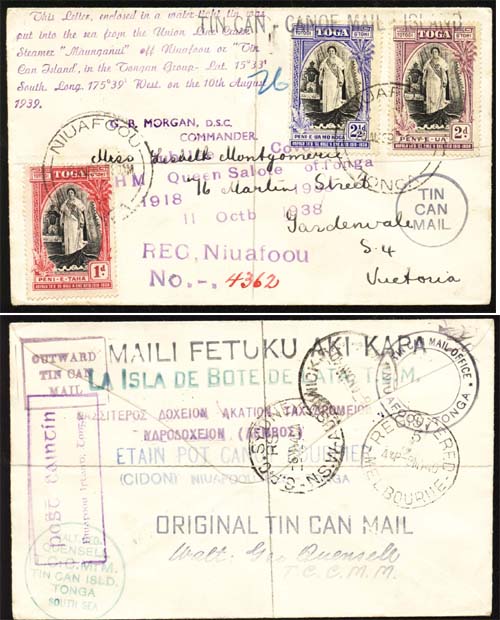 This Letter, enclosed in a water-tight tin was
put into the sea from the Union Line
Steamer "Maunganui" off Niuafoou or "Tin
Can Island", in the Tongan Group- Lat. 15°33'
South, Long. 175°39' West. on the 10th August
1939.
TIN CAN - CANOE MAIL - ISLAND
G. B. MORGAN, D.S.C.
COMMANDER.
26
TOGA
2½d
PENI E UA MO NOGA
TOGA
2d
PENI E UA
NIUAFOOU
NIUAFOOU
TONGA
Miss Lisbeth Montgomerie
HM Queen Salote of Tonga
76 Martin Street
1918
11 Octb 1938
Gardenvale
S.4
Victoria
TIN
CAN
MAIL
TOGA
1d
PENI-E-TAHA
REG, Niuafoou
No.-. 4362
OUTWARD
TIN CAN
MAIL
MAILI FETUKU AKI KAPA
LA ISLA DE BOTE DE LATA T.C.M.
ΚΑΣΣΙΤΕΡΟΣ ΔΟΧΕΙΟΝ ΑΚΑΤΙΟΝ ΤΑΧΥΔΡΟΜΕΙΟΝ
ΥΔΡΟΔΟΧΕΙΟΝ (ΛΕΜΒΟΣ)
ETAIN POT CANOT COURRIER
(CIDON) NIUAFOOU TONGA
post canntin
Niuafoou Island, Tonga
MAIL OFFICE
TONGA
REGISTERED
5
MELBOURNE
ORIGINAL TIN CAN MAIL
Walt. Geo Quensell
T. C. C. M. M.
WALT. GEO.
QUENSELL
T.C.M.M.
TIN CAN ISLD.
TONGA
SOUTH SEA